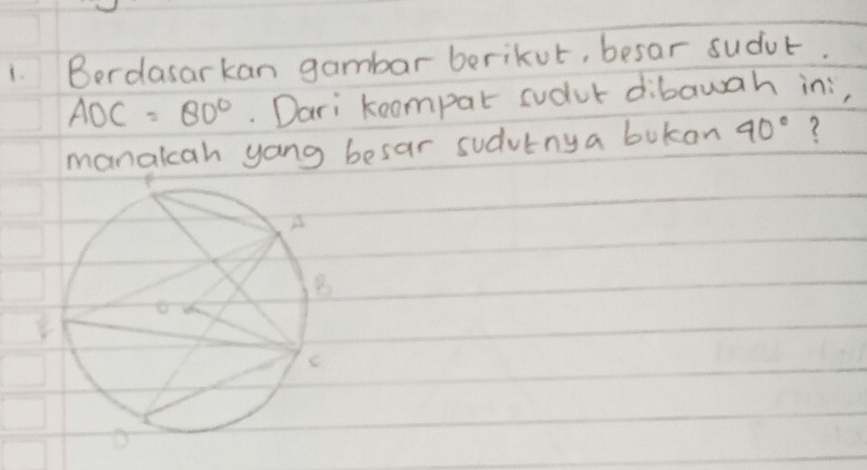 1. Berdasarkan gambar berikut, besar sudut.
AOC = 80°. Dari keempat sudut dibawah ini,
manakah yang besar sudutnya bukan 40° ?
F
A
B
O
E
C
D